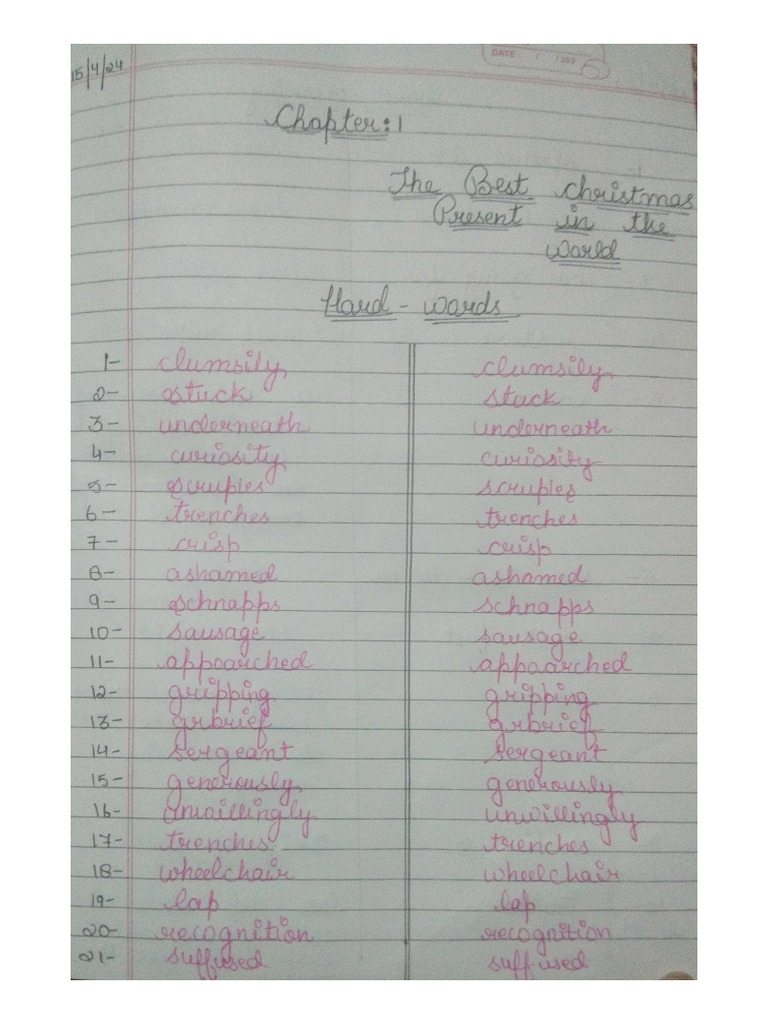 15/4/24
DATE: / /
Chapter: 1
The Best Christmas
Present in the
World
Hard - words
1- clumsily clumsily
2- stuck stuck
3- underneath underneath
4- curiosity curiosity
5- scruples scruples
6- trenches trenches
7- crisp crisp
8- ashamed ashamed
9- schnapps schnapps
10- sausage sausage
11- appoarched appaarched
12- gripping gripping
13- grbrief grbrief
14- sergeant sergeant
15- generously generously
16- unwillingly unwillingly
17- trenches trenches
18- wheelchair wheelchair
19- lap lap
20- recognition recognition
21- suffused suffused